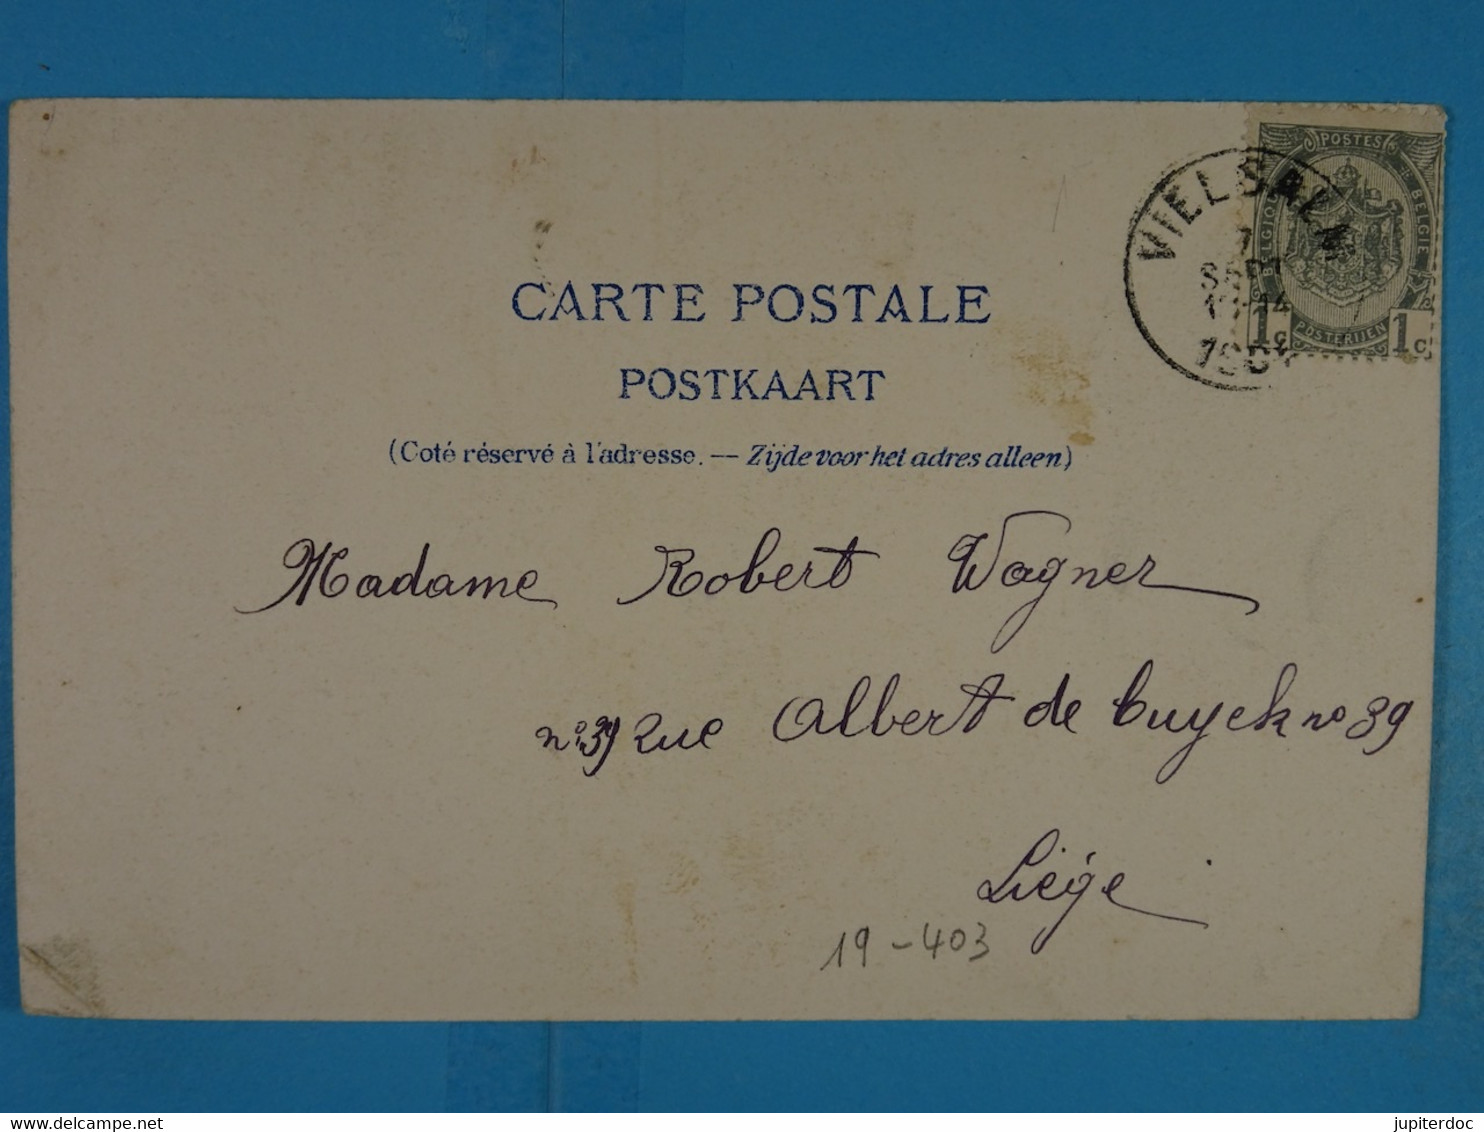 POSTES
BELGIQUE
BELGIE
POSTERIJEN
1c 1c
VIELSALM
7
SEPT
CARTE POSTALE
POSTKAART
(Coté réservé à l'adresse. — Zijde voor het adres alleen)
Madame Robert Wagner
n° 39 rue Albert de Cuyck n° 39
Liége
19-403
jupiterdoc